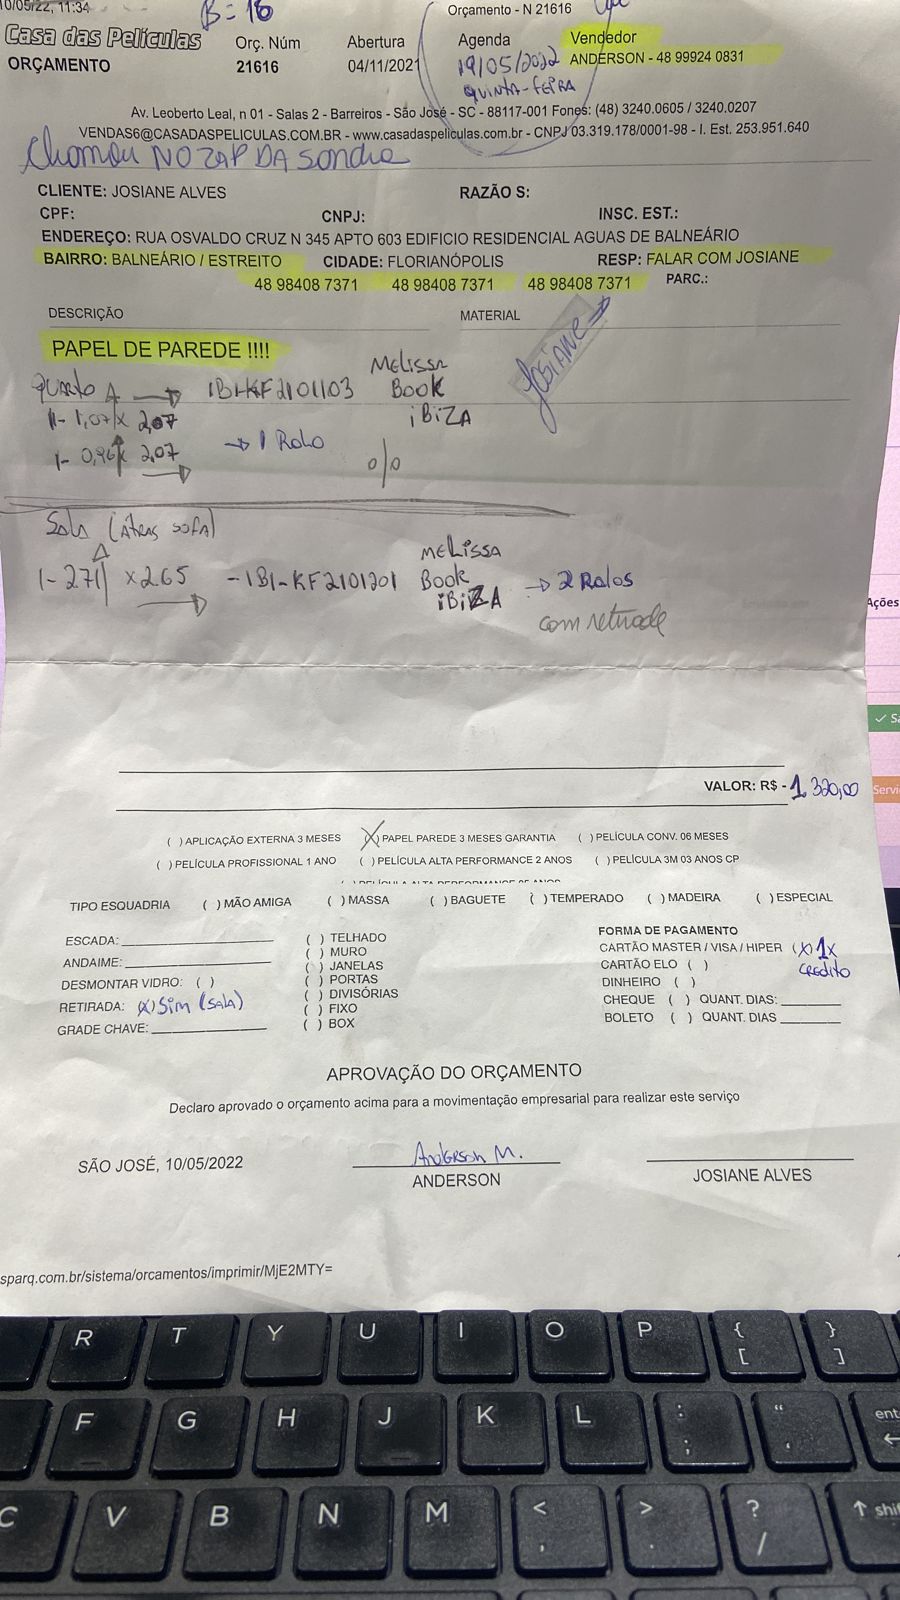 10/05/22, 11:34
B = 16
Orçamento - N 21616
Casa das Películas
ORÇAMENTO
Orç. Núm
21616
Abertura
04/11/2021
Agenda
19/05/2022
QUINTA-FEIRA
Vendedor
ANDERSON - 48 99924 0831
Av. Leoberto Leal, n 01 - Salas 2 - Barreiros - São José - SC - 88117-001 Fones: (48) 3240.0605 / 3240.0207
VENDAS6@CASADASPELICULAS.COM.BR - www.casadaspeliculas.com.br - CNPJ 03.319.178/0001-98 - I. Est. 253.951.640
Chamou NO ZAP DA Sondra
CLIENTE: JOSIANE ALVES RAZÃO S:
CPF: CNPJ: INSC. EST.:
ENDEREÇO: RUA OSVALDO CRUZ N 345 APTO 603 EDIFICIO RESIDENCIAL AGUAS DE BALNEÁRIO
BAIRRO: BALNEÁRIO / ESTREITO CIDADE: FLORIANÓPOLIS RESP: FALAR COM JOSIANE
48 98408 7371 48 98408 7371 48 98408 7371 PARC.:
DESCRIÇÃO MATERIAL
PAPEL DE PAREDE !!!!
JOSIANE
Quarto → IBI-KF2101103 MELISSA
Book
iBiZA
1- 1,07 x 2,07
1- 0,96 x 2,07 → 1 Rolo
o/o
Sala (Atras sofa)
1- 271 x 2.65 - IBI-KF2101201 MELISSA
Book
iBiZA → 2 Rolos
com retirada
Ações
VALOR: R$ - 1.320,00
Servi
( ) APLICAÇÃO EXTERNA 3 MESES (X) PAPEL PAREDE 3 MESES GARANTIA ( ) PELÍCULA CONV. 06 MESES
( ) PELÍCULA PROFISSIONAL 1 ANO ( ) PELÍCULA ALTA PERFORMANCE 2 ANOS ( ) PELÍCULA 3M 03 ANOS CP
TIPO ESQUADRIA ( ) MÃO AMIGA ( ) MASSA ( ) BAGUETE ( ) TEMPERADO ( ) MADEIRA ( ) ESPECIAL
ESCADA:
ANDAIME:
DESMONTAR VIDRO: ( )
RETIRADA: (x) Sim (SALA)
GRADE CHAVE:
( ) TELHADO
( ) MURO
( ) JANELAS
( ) PORTAS
( ) DIVISÓRIAS
( ) FIXO
( ) BOX
FORMA DE PAGAMENTO
CARTÃO MASTER / VISA / HIPER (x) 1x
CREDITO
CARTÃO ELO ( )
DINHEIRO ( )
CHEQUE ( ) QUANT. DIAS:
BOLETO ( ) QUANT. DIAS
APROVAÇÃO DO ORÇAMENTO
Declaro aprovado o orçamento acima para a movimentação empresarial para realizar este serviço
SÃO JOSÉ, 10/05/2022
Anderson M.
ANDERSON
JOSIANE ALVES
sparq.com.br/sistema/orcamentos/imprimir/MjE2MTY=
R T Y U I O P { [ } ]
F G H J K L : ; “ ‘ ent
C V B N M < , > . ? / shi